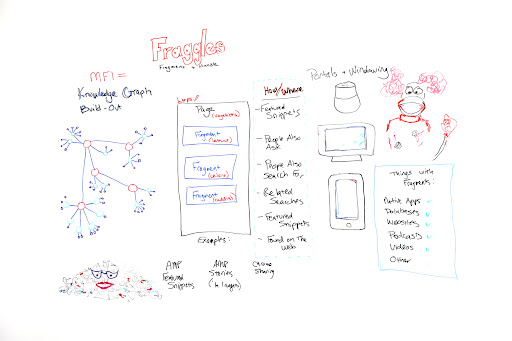 Fraggles
Fragment + Handle
MFI =
Knowledge Graph
Build-Out
Page
(vegetable)
Fragment
Fragment
Fragment
Examples:
AMP
Featured
Snippets
AMP
Stories
Sharing
How/Where
- Featured
Snippets
- People Also
Ask
- People Also
Search For
- Related
Searches
- Featured
Snippets
- Found on The
Web
Portals + Windowing
Things with
Fragments:
Native Apps
Databases
Websites
Podcasts
Videos
Other